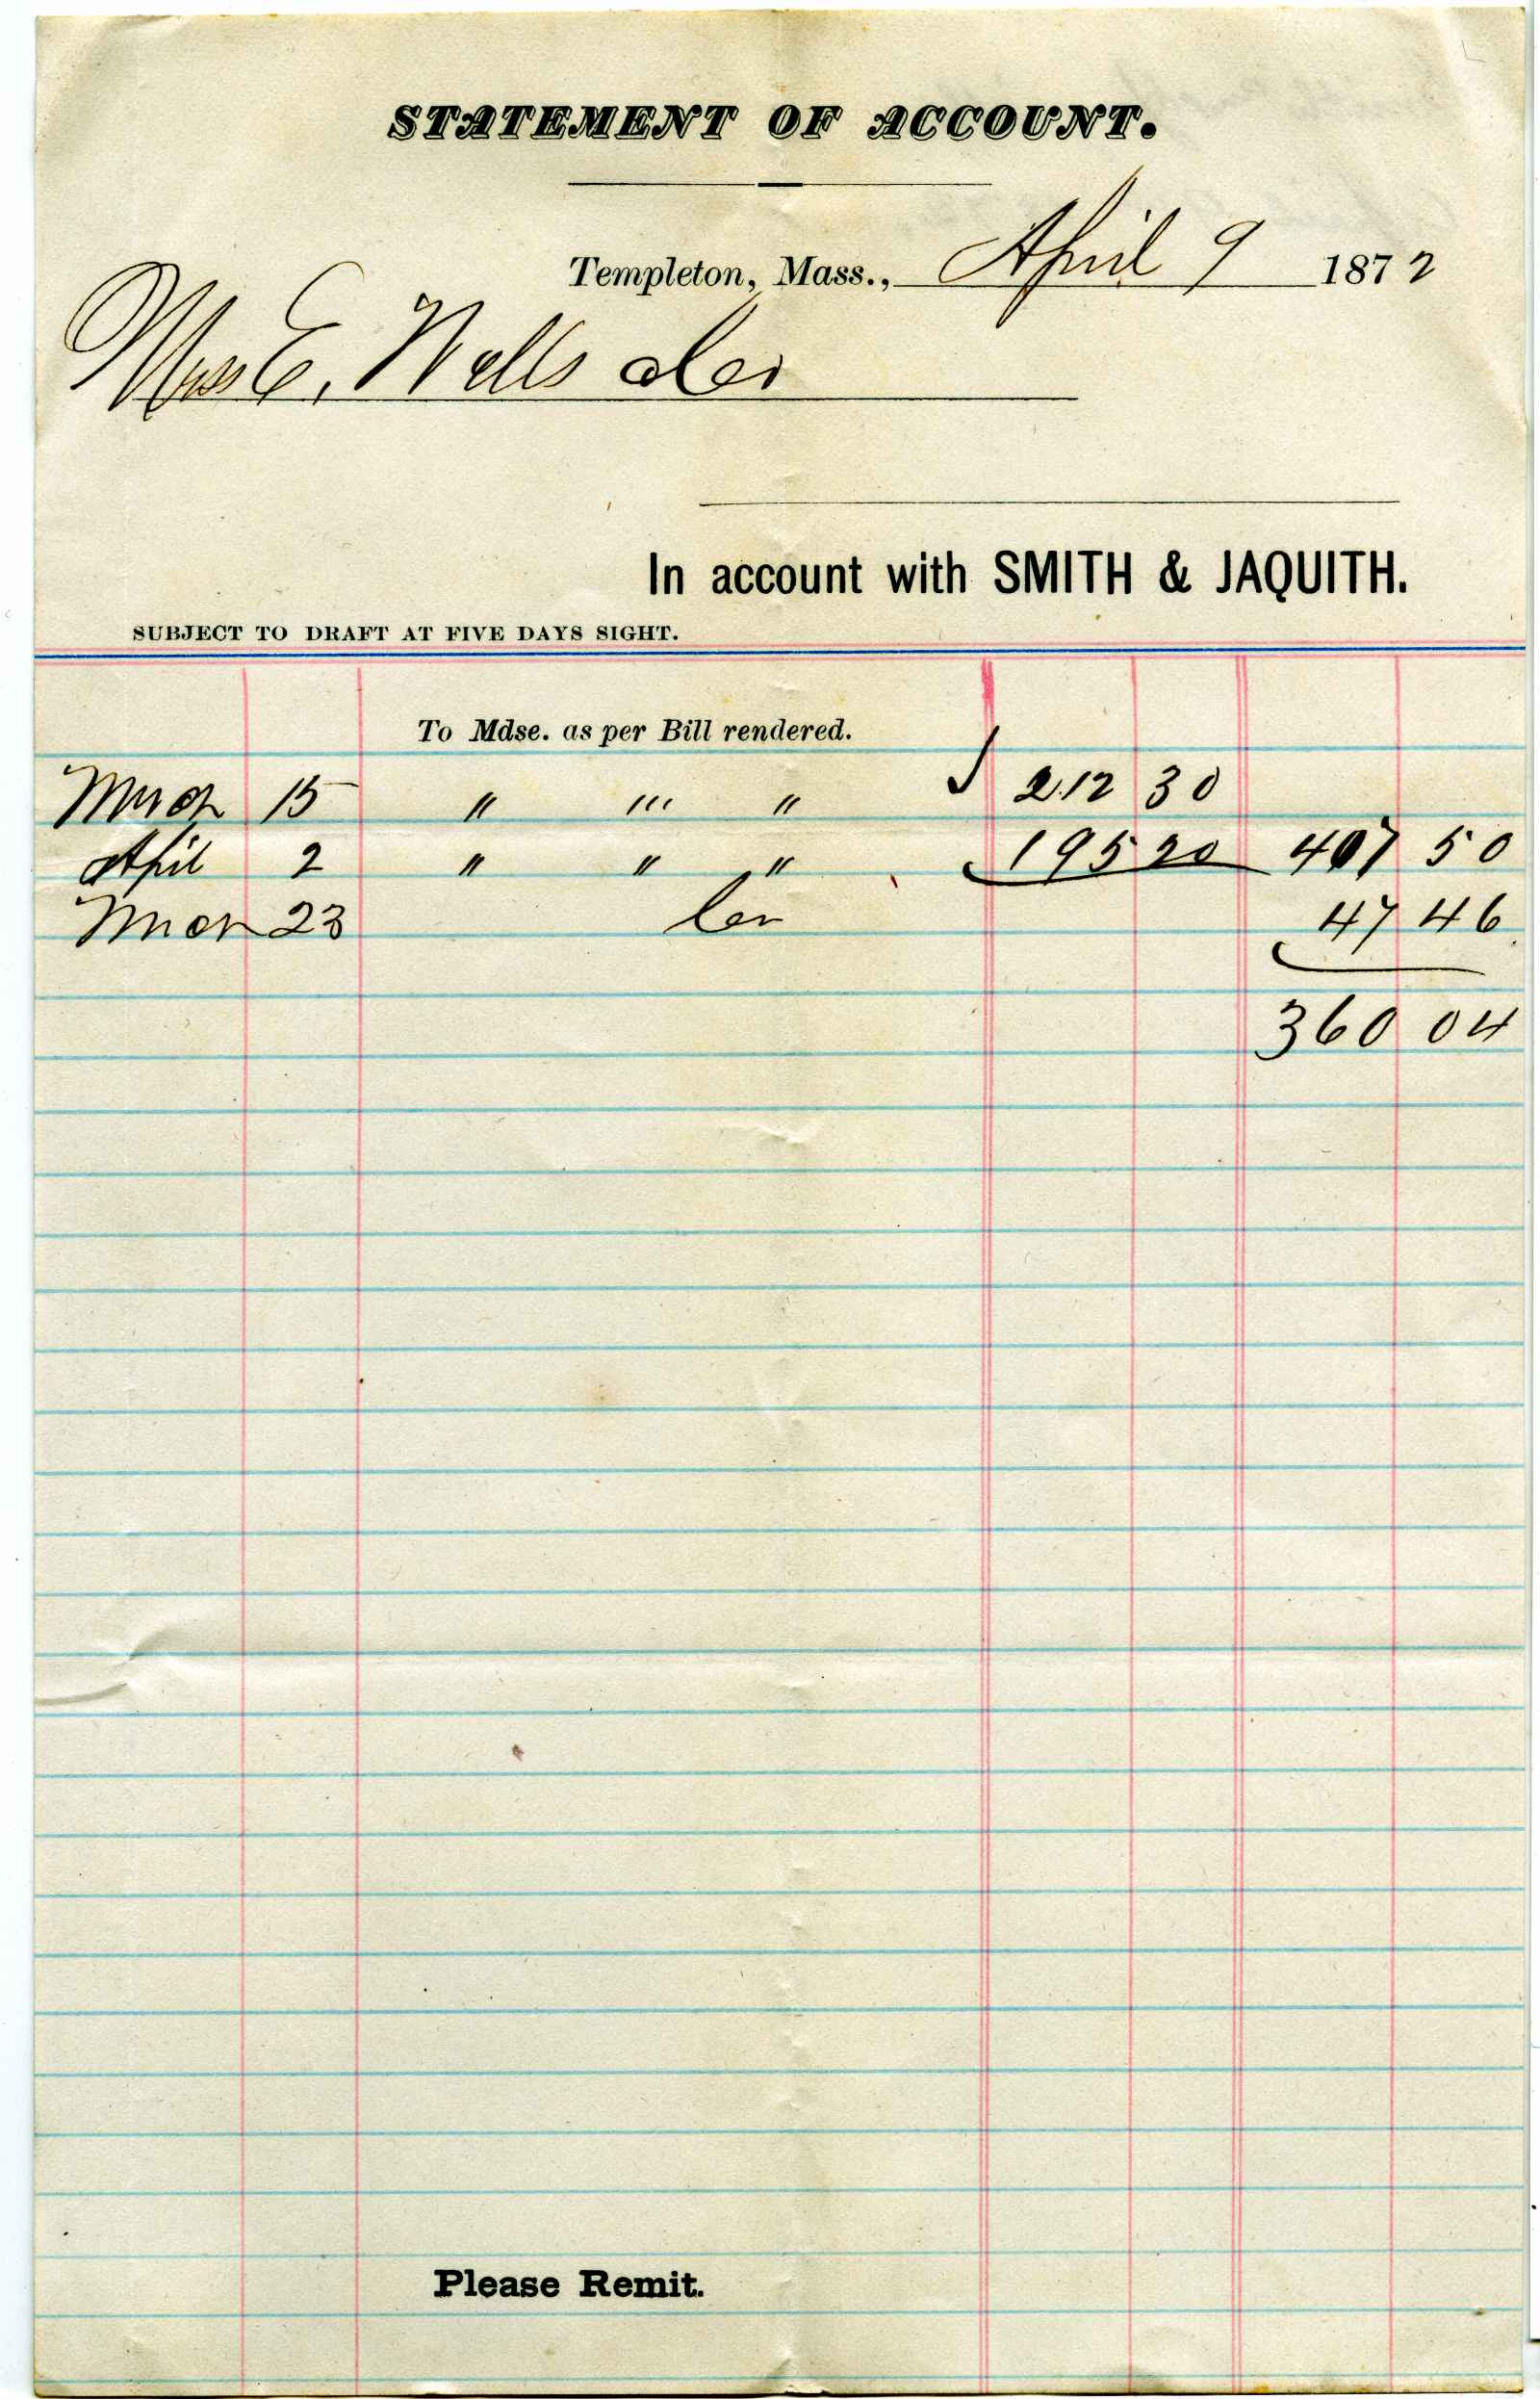 STATEMENT OF ACCOUNT.
Templeton, Mass., April 9 1872
E. Wells
In account with SMITH & JAQUITH.
SUBJECT TO DRAFT AT FIVE DAYS SIGHT.
To Mdse. as per Bill rendered.
March 15 " " " 212 30
April 2 " " " 195 20 407 50
March 23 Cr 47 46
360 04
Please Remit.